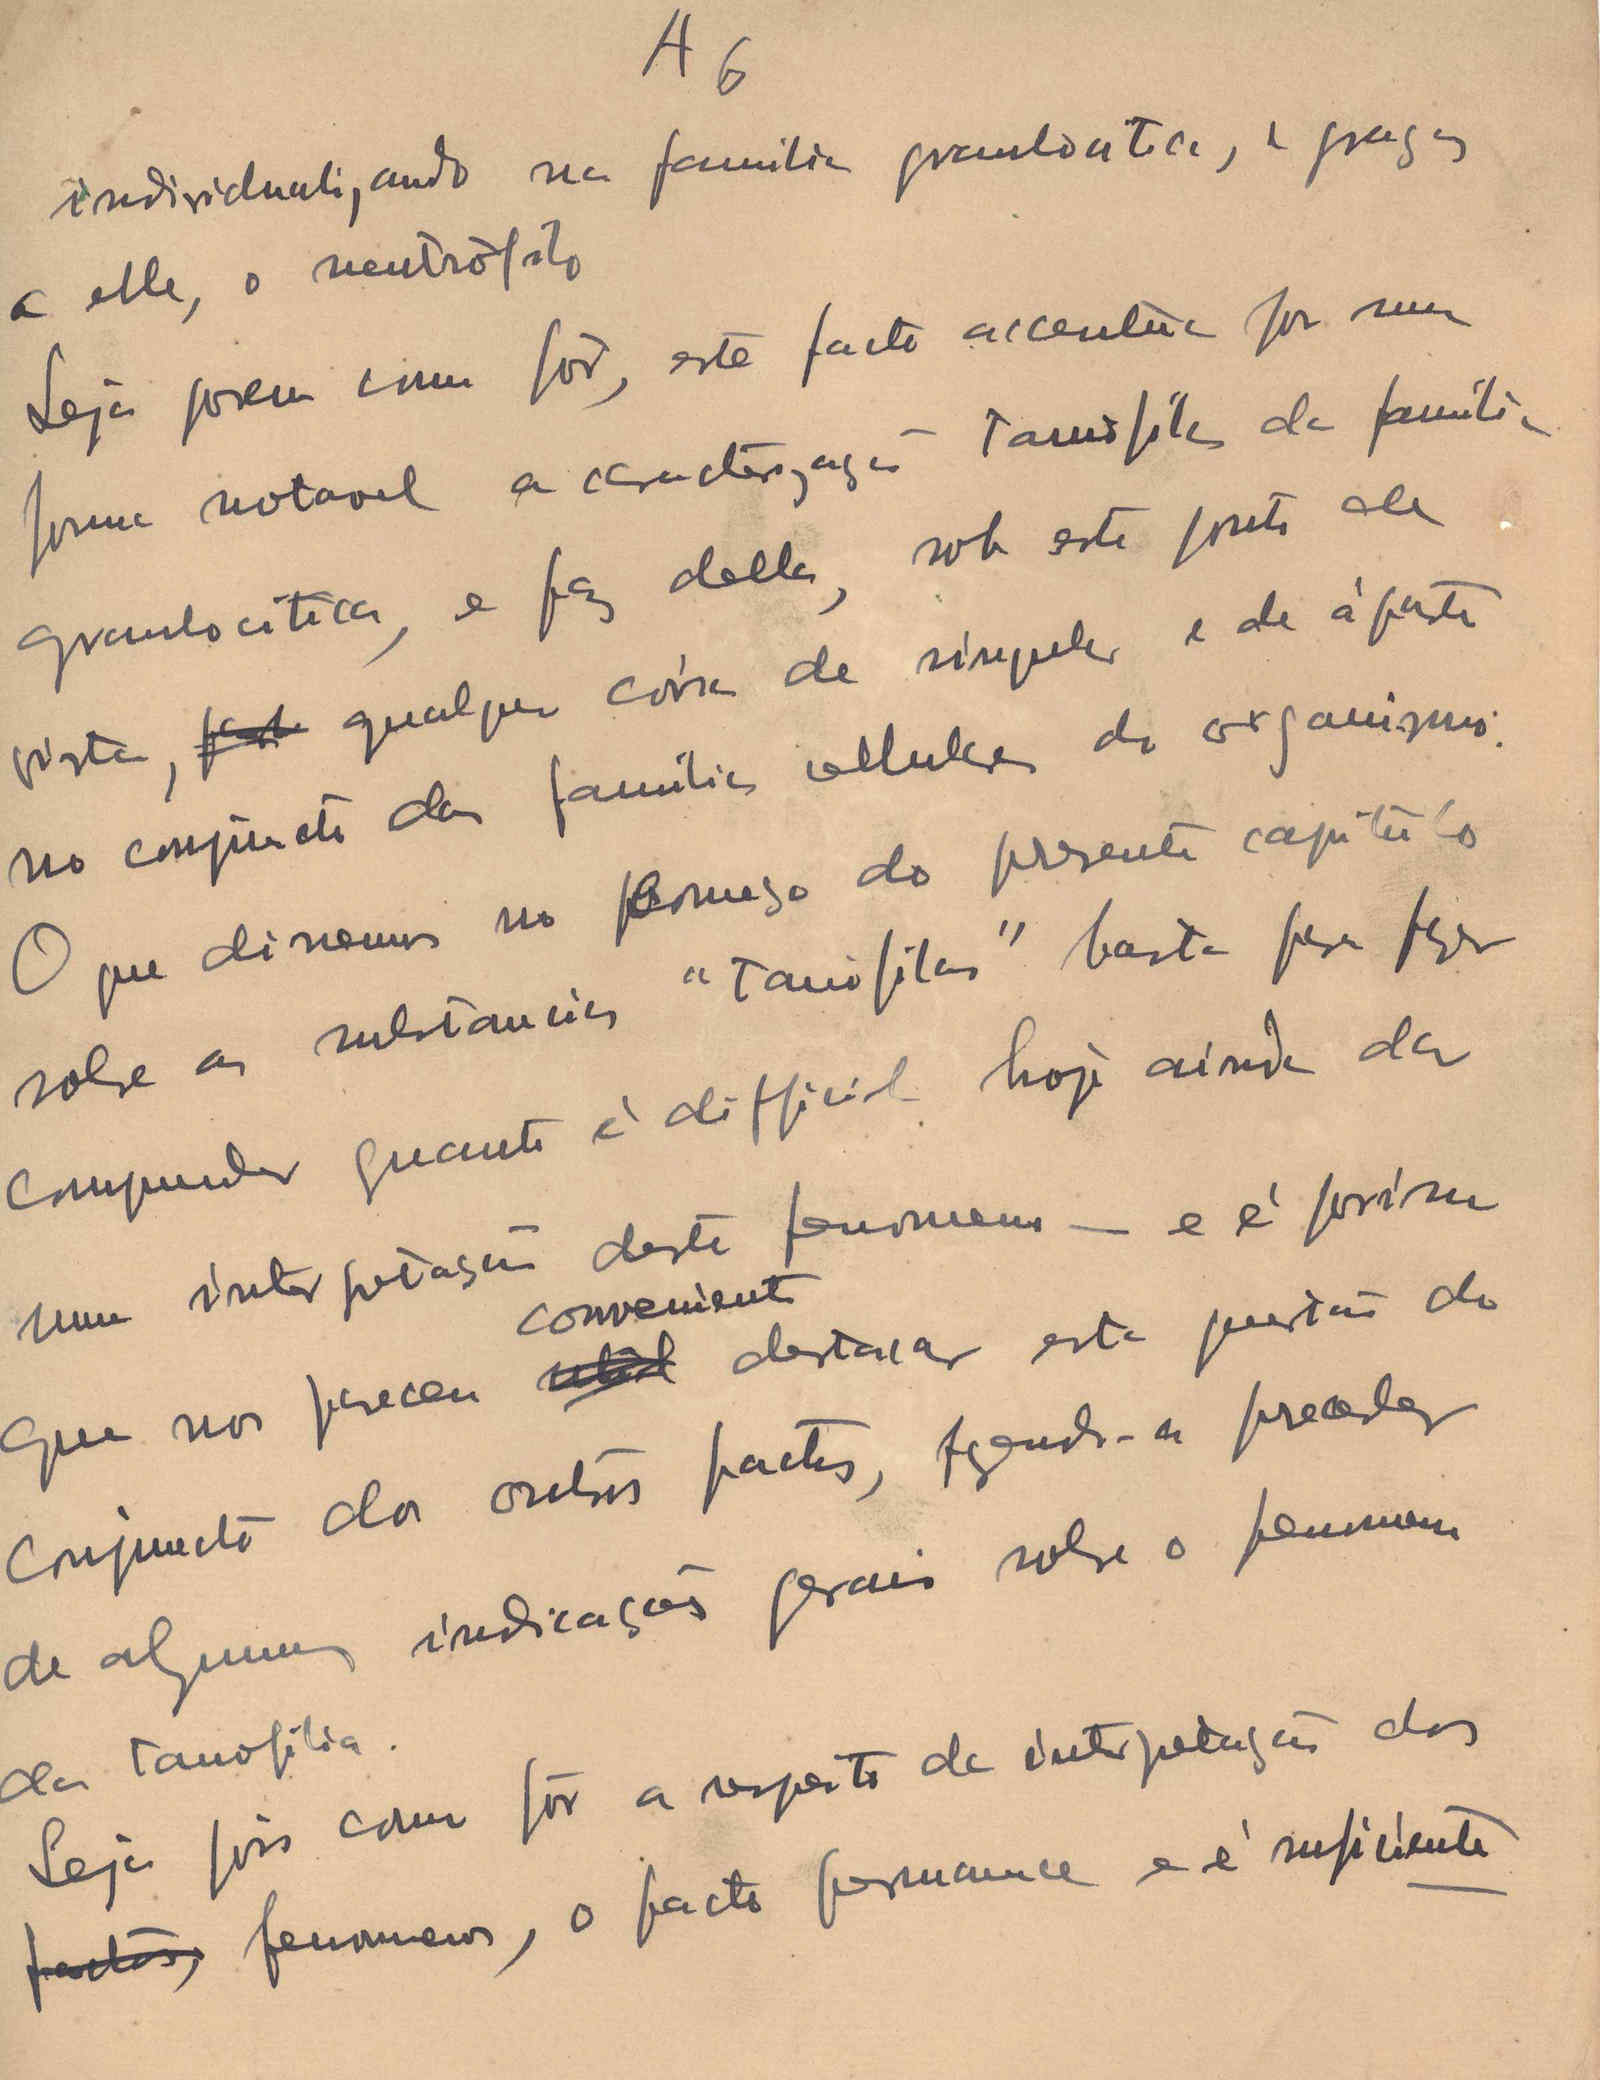 A 6
individualizando na familia granulocitica, e graças
a elle, o neutrófilo
Seja porem como fôr, este facto accentúa por uma
forma notavel a caracterização tanófila da familia
granulocitica, e faz della, sob este ponto de
vista, qualquer coisa de singular e de áparte
no conjuncto das familias cellulares do organismo.
O que dissemos no começo do presente capitulo
sobre as substancias "tanófilas" basta para fazer
comprehender quanto é difficil hoje ainda dar
uma interpretação deste fenomeno — e é por isso
conveniente
que nos pareceu util destacar esta questão do
conjuncto dos outros factos, fazendo-a preceder
de algumas indicações gerais sobre o fenomeno
da tanofilia.
Seja pois como fôr a respeito da interpretação dos
factos, fenomenos, o facto permanece e é suficiente